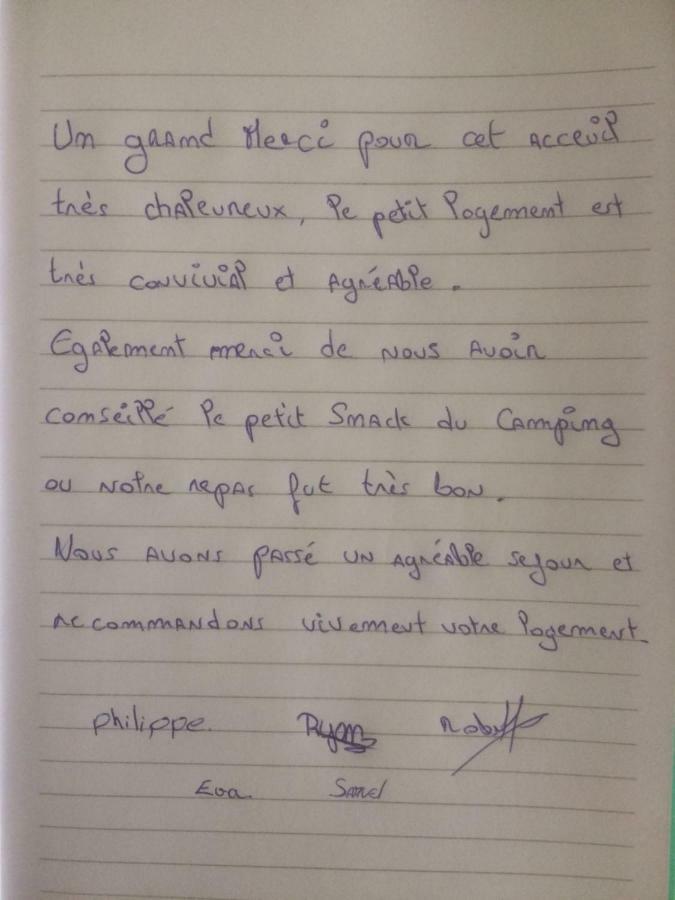 Un grand Merci pour cet acceuil
très chaleureux, le petit logement est
très convivial et agréable.
Egalement merci de nous avoir
conseillé le petit Smack du Camping
ou notre repas fut très bon.
Nous avons passé un agréable sejour et
reccommandons vivement votre logement.
philippe. Ryan
Eva.